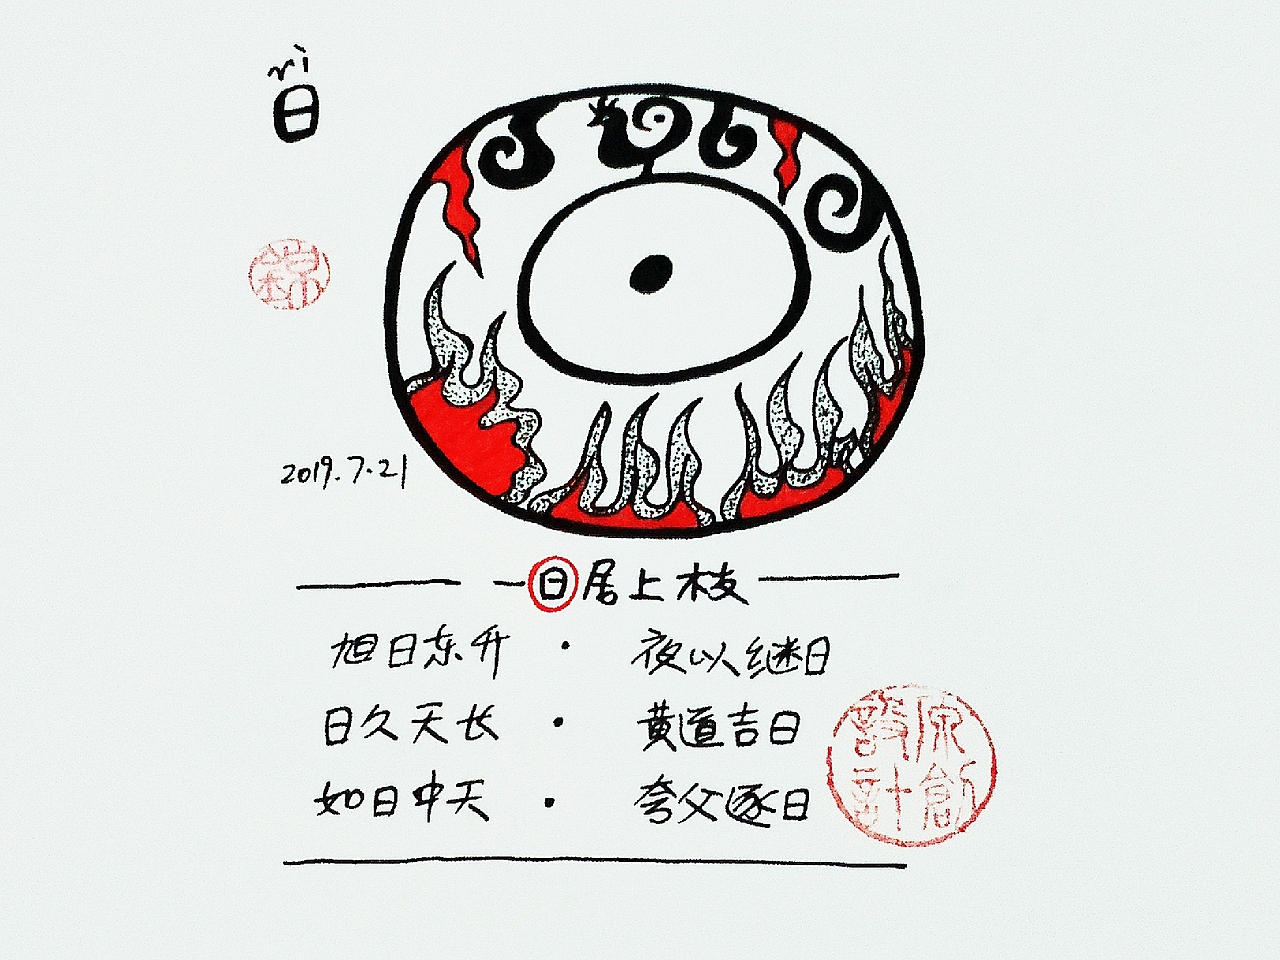 rì
日
錦
2019.7.21
一日居上枝
旭日东升 · 夜以继日
日久天长 · 黄道吉日
如日中天 · 夸父逐日
原創
設計